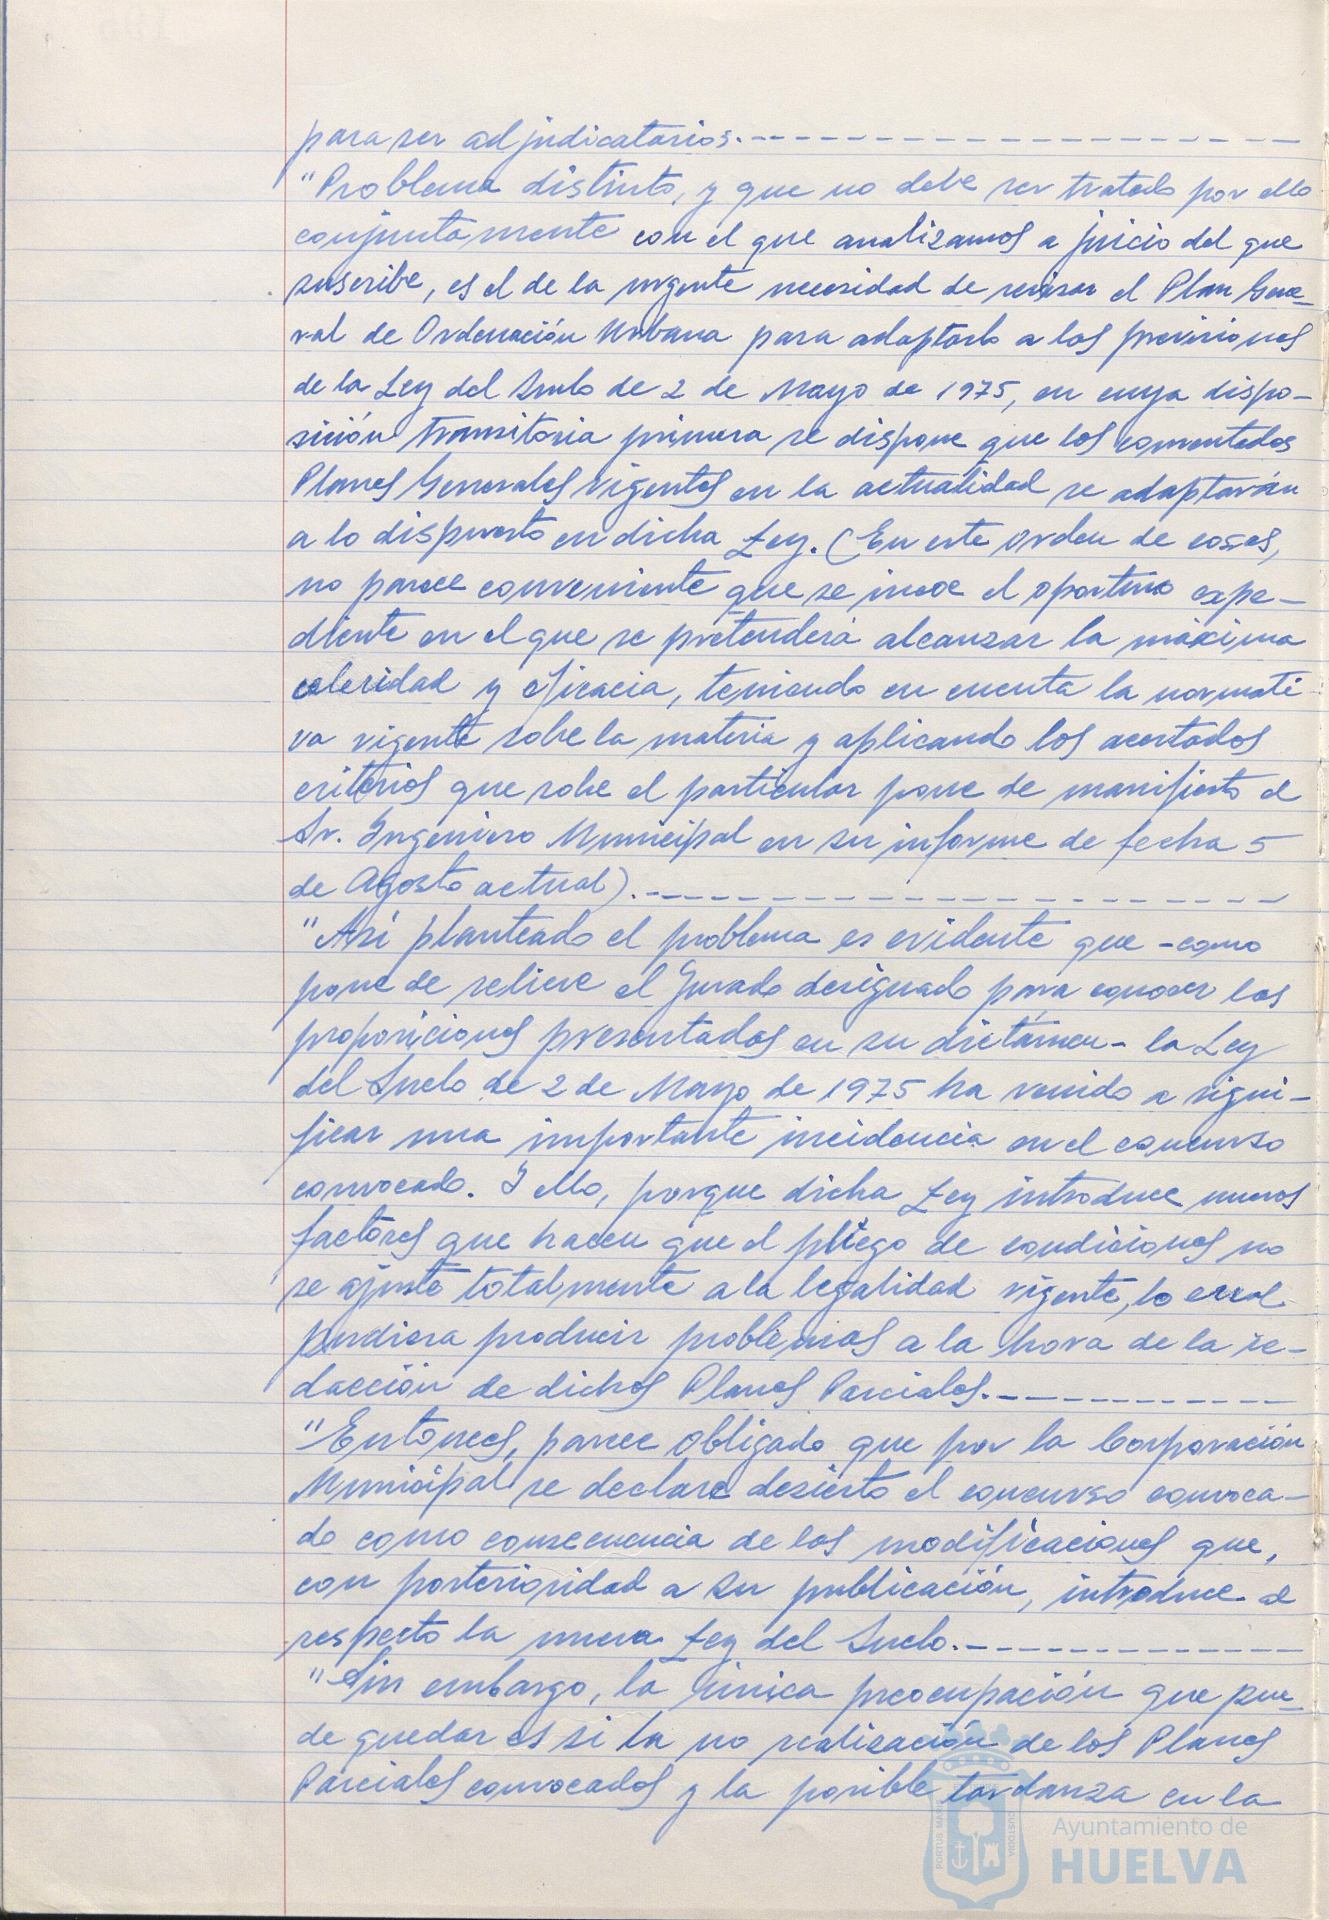 para ser adjudicatarios.- - - - - - - - - - - - - - - - - -
"Problema distinto, y que no debe ser tratado por ello
conjuntamente con el que analizamos a juicio del que
suscribe, es el de la urgente necesidad de revisar el Plan Gene-
ral de Ordenación Urbana para adaptarlo a las previsiones
de la Ley del Suelo de 2 de Mayo de 1975, en cuya dispo-
sición transitoria primera se dispone que los comentados
Planes Generales vigentes en la actualidad se adaptarán
a lo dispuesto en dicha Ley. (En este orden de cosas,
no parece conveniente que se incoe el oportuno expe-
diente en el que se pretenderá alcanzar la máxima
celeridad y eficacia, teniendo en cuenta la normati-
va vigente sobre la materia y aplicando los acertados
criterios que sobre el particular pone de manifiesto el
Sr. Ingeniero Municipal en su informe de fecha 5
de Agosto actual).- - - - - - - - - - - - - - - - - - - -
"Así planteado el problema es evidente que -como
pone de relieve el Jurado designado para conocer las
proposiciones presentadas en su dictámen- la Ley
del Suelo de 2 de Mayo de 1975 ha venido a signi-
ficar una importante incidencia en el concurso
convocado. Y ello, porque dicha Ley introduce nuevos
factores que hacen que el pliego de condiciones no
se ajuste totalmente a la legalidad vigente, lo cual
pudiera producir problemas a la hora de la re-
dacción de dichos Planes Parciales.- - - - - - - - - -
"Entonces, parece obligado que por la Corporación
Municipal se declare desierto el concurso convoca-
do como consecuencia de las modificaciones que,
con posterioridad a su publicación, introduce al
respecto la nueva Ley del Suelo.- - - - - - - - - - -
"Sin embargo, la única preocupación que pue-
de quedar es si la no realización de los Planes
Parciales convocados y la posible tardanza en la
PORTUS MARIS CUSTODIA
Ayuntamiento de
HUELVA